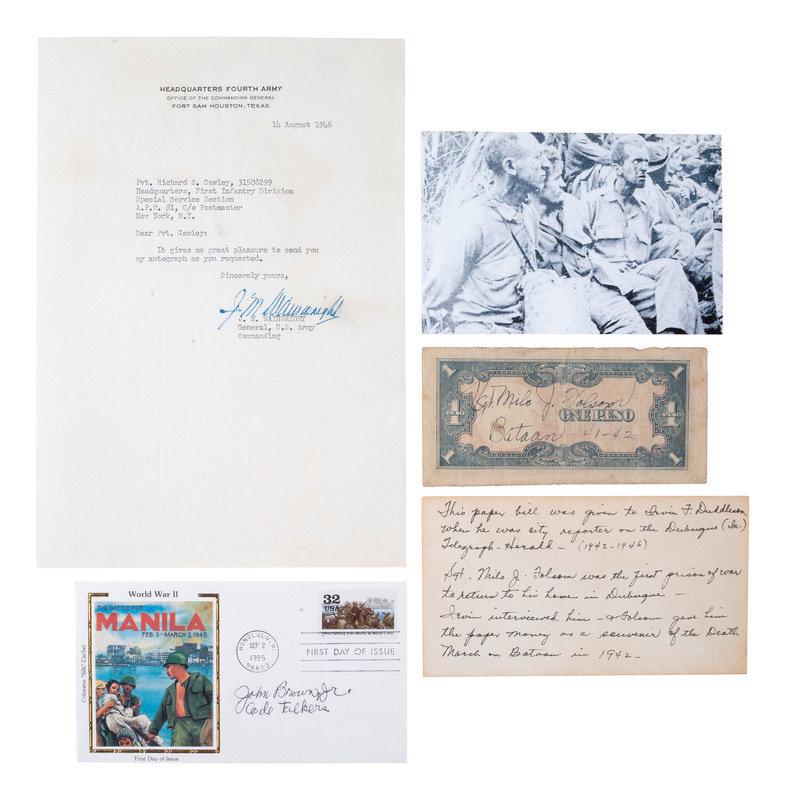 HEADQUARTERS FOURTH ARMY
OFFICE OF THE COMMANDING GENERAL
FORT SAM HOUSTON, TEXAS
14 August 1946
Pvt. Richard S. Cawley, 31508299
Headquarters, First Infantry Division
Special Service Section
A.P.O. #1, C/o Postmaster
New York, N.Y.
Dear Pvt. Cawley:
It gives me great pleasure to send you
my autograph as you requested.
Sincerely yours,
J M Wainwright
J. M. WAINWRIGHT
General, U.S. Army
Commanding
1 1
PESO PESO
Sgt. Milo J. Folsom
ONE PESO
Bataan 41-42
This paper bill was given to Irvin F. Duddleson
when he was city reporter on the Dubuque (Ia.)
Telegraph-Herald – (1942-1946)
Sgt. Milo J. Folsom was the first prison of war
to return to his home in Dubuque –
Irvin interviewed him – & Folsom gave him
the paper money as a souvenir of the Death
March on Bataan in 1942 –
World War II
THE BATTLE FOR
MANILA
FEB. 3 - MARCH 3, 1945
Colorano "Silk" Cachet
First Day of Issue
32
USA
HONOLULU, HI
SEP 2
1995
96820
FIRST DAY OF ISSUE
John Brown, Jr.
Code Talkers